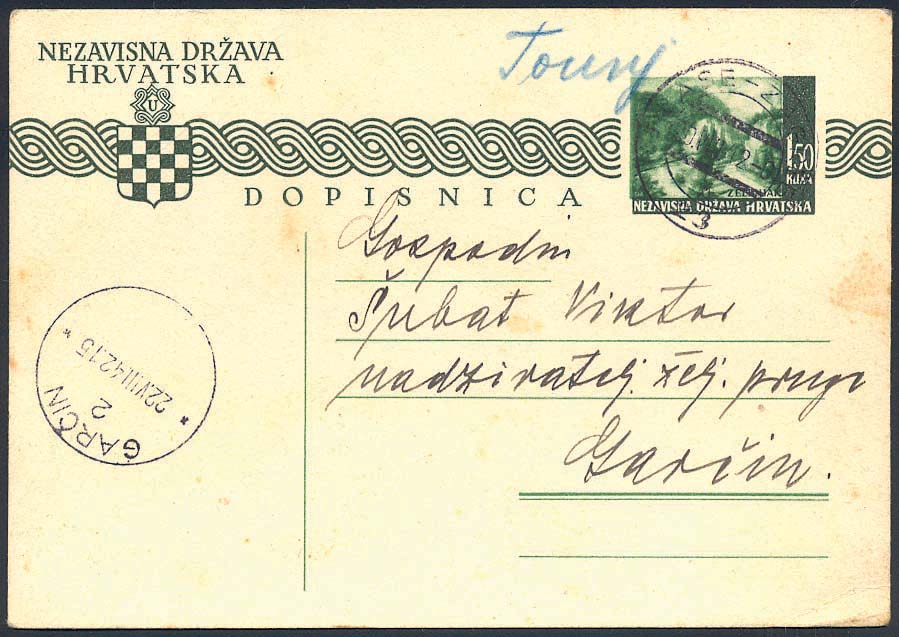 NEZAVISNA DRŽAVA
HRVATSKA
U
DOPISNICA
1.50
KUNA
NEZAVISNA DRŽAVA HRVATSKA
3
Gospodin
Šubat Viktor
nadziratelj. želj. pruge
Garčin.
GARČIN
2
* 22.VIII.42.15 *